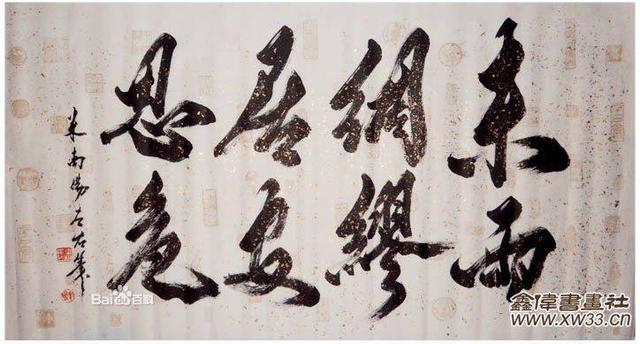 未雨
綢繆
居安
思危
Bai百科
鑫偉書畫社
www.xw33.cn